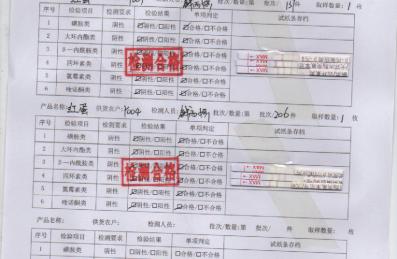 批次/数量:第 批次/ 件 取样数量:1 枚
序号 检验项目 检测要求 检验结果 单项判定 试纸条存档
1 磺胺类 阴性 ☑阴性/☐阳性 ☑合格/☐不合格
2 大环内酯类 阴性 ☑阴性/☐阳性 ☑合格/☐不合格
3 β-内酰胺类 阴性 ☑合格/☐不合格
4 四环素类 阴性 ☑合格/☐不合格
5 氯霉素类 阴性 ☑合格/☐不合格
6 喹诺酮类 阴性 ☑阴性/☐阳性 ☑合格/☐不合格
检测合格
产品名称:红蛋 供货农户:1004 检测人员: 批次/数量:第 批次 206 件 取样数量:1 枚
序号 检验项目 检测要求 检验结果 单项判定 试纸条存档
1 磺胺类 阴性 ☑阴性/☐阳性 ☑合格/☐不合格
2 大环内酯类 阴性 ☑阴性/☐阳性 ☑合格/☐不合格
3 β-内酰胺类 阴性 ☑合格/☐不合格
4 四环素类 阴性 ☑合格/☐不合格
5 氯霉素类 阴性 ☑合格/☐不合格
6 喹诺酮类 阴性 ☑阴性/☐阳性 ☑合格/☐不合格
检测合格
产品名称: 供货农户: 检测人员: 批次/数量:第 批次/ 件 取样数量: 枚
序号 检验项目 检测要求 检验结果 单项判定 试纸条存档
1 磺胺类 阴性 ☐阴性/☐阳性 ☐合格/☐不合格